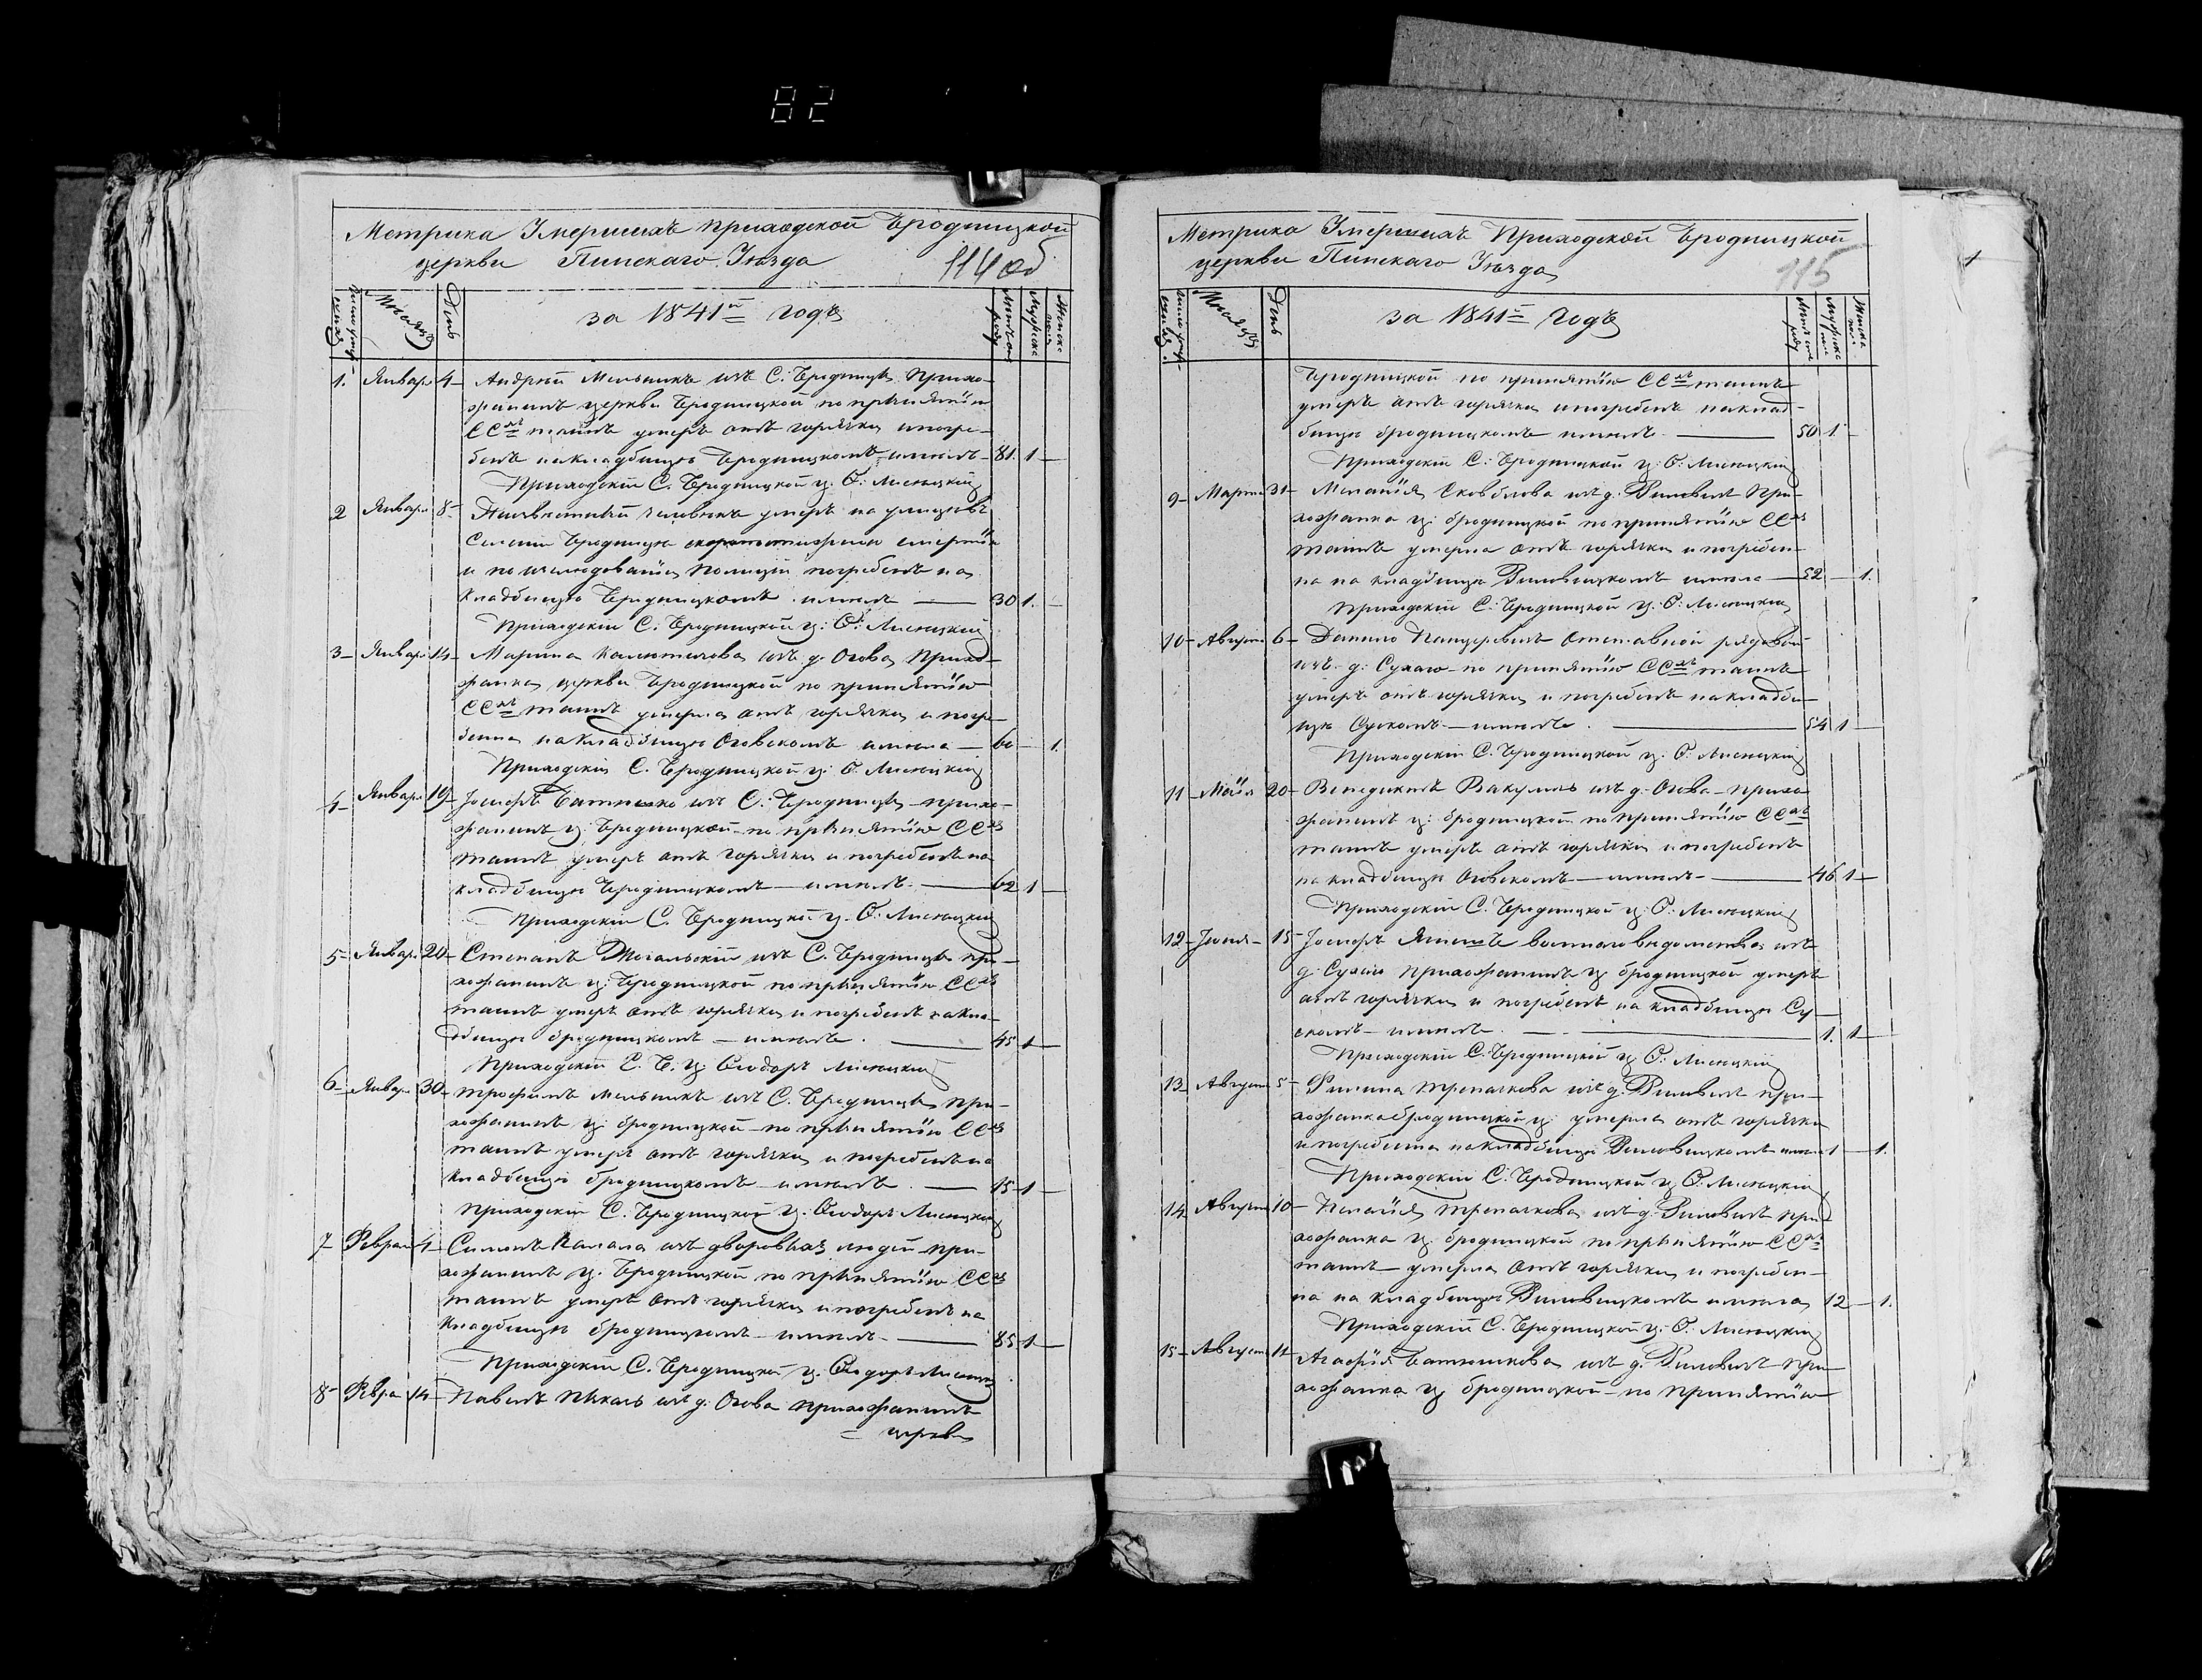 82
Метрика Умершихъ приходской Бродницкой
церкви Пинскаго Уѣзда
114 об
Мѣсяцъ
День
за 1841й годъ
1. Январ. 4 Андрей Мельникъ изъ С. Бродницы прихо-
жанинъ церкви Бродницкой по принятіи
ССхъ таинъ умеръ отъ горячки и погре-
бенъ на кладбищѣ Бродницкомъ имянъ 81. 1
Приходскій С. Бродницкой ц. Ѳ: Лисецкій
2 Январ 8 Неизвѣстный человѣкъ умеръ на улицѣ въ
Селеніи Бродницѣ скоропостижною смертію
и по изслѣдованіи полиціи погребенъ на
Кладбищѣ Бродницкомъ имянъ 30 1.
Приходскій С. Бродницкой ц: Ѳ: Лисецкій
3 Январ 14 Марина изъ д. Огова прихо-
жанка церкви Бродницкой по принятію
ССхъ таинъ умерла отъ горячки и погре-
бенна на кладбищѣ Оговскомъ имянъ 60 1.
Приходскій С. Бродницкой ц: Ѳ. Лисецкій
4 Январ 19 Іосифъ изъ С: Бродницы прихо-
жанинъ ц: Бродницкой по принятію ССхъ
таинъ умеръ отъ горячки и погребенъ на
кладбищѣ Бродницкомъ имянъ. 62 1
Приходскій С. Бродницкой ц. Ѳ: Лисецкій
5 Январ. 20 Степанъ изъ С. Бродницы при-
хожанинъ ц: Бродницкой по принятію ССхъ
таинъ умеръ отъ горячки и погребенъ на кла-
дбищѣ бродницкомъ имянъ. 45 1
Приходскій С. Б. ц: Ѳеодоръ Лисецкій
6 Январ 30 Трофимъ Мельникъ изъ С. Бродницы при-
хожанинъ ц: бродницкой по принятію ССхъ
таинъ умеръ отъ горячки и погребенъ на
кладбищѣ бродницкомъ имянъ. 15 1
Приходскій С. Бродницкой ц: Ѳеодоръ Лисецкій
7 Феврал 4 Симонъ изъ дворовыхъ людей при-
хожанинъ ц. Бродницкой по принятію ССхъ
таинъ умеръ отъ горячки и погребенъ на
кладбищѣ бродницкомъ имянъ 85 1
Приходскій С. Бродницкой ц. Ѳеодоръ Лисецкій
8 Февра 14 Павелъ изъ д. Огова прихожанинъ
церкви
Метрика Умершихъ Приходской Бродницкой
церкви Пинскаго Уѣзда
115
Мѣсяцъ
День
за 1841й Годъ
Бродницкой по принятію ССхъ таинъ
умеръ отъ горячки и погребенъ на клад-
бищѣ бродницкомъ имянъ 50 1.
Приходскій С: Бродницкой ц. Ѳ: Лисецкій
9 Марта 31 изъ д. при-
хожанка ц: бродницкой по принятію ССхъ
таинъ умерла отъ горячки и погребен-
на на кладбищѣ имянъ 52 1.
Приходскій С: Бродницкой ц. Ѳ: Лисецкій
10 6 Данило отставной рядовый
изъ д: Сухаго по принятію ССхъ таинъ
умеръ отъ горячки и погребенъ на кладби-
щѣ Сускомъ имянъ. 54 1
Приходскій С. Бродницкой ц. Ѳ: Лисецкій
11 Маія 20 Венедиктъ Вакуличъ изъ д. Огова прихо-
жанинъ ц: бродницкой по принятію ССхъ
таинъ умеръ отъ горячки и погребенъ
на кладбищѣ Оговскомъ имянъ 46 1
Приходскій С. Бродницкой ц: Ѳ: Лисецкій
12 15 Іосифъ военнаго вѣдомства изъ
д. Сухаго прихожанинъ ц бродницкой умеръ
отъ горячки и погребенъ на кладбищѣ Су-
скомъ имянъ. 1. 1
Приходскій С. Бродницкой ц Ѳ: Лисецкій
13 Августа 5 изъ д. при-
хожанка бродницкой ц: умерла отъ горячки
и погребенна на кладбищѣ 1 1.
Приходскій С. Бродницкой ц Ѳ: Лисецкій
14 Августа 10 изъ д. при-
хожанка ц. бродницкой по принятію ССхъ
таинъ умерла отъ горячки и погребен-
на на кладбищѣ имянъ 12 1.
Приходскій С. Бродницкой ц: Ѳ. Лисецкій
15 Август 11 Агафія изъ д. при-
хожанка ц бродницкой по принятію